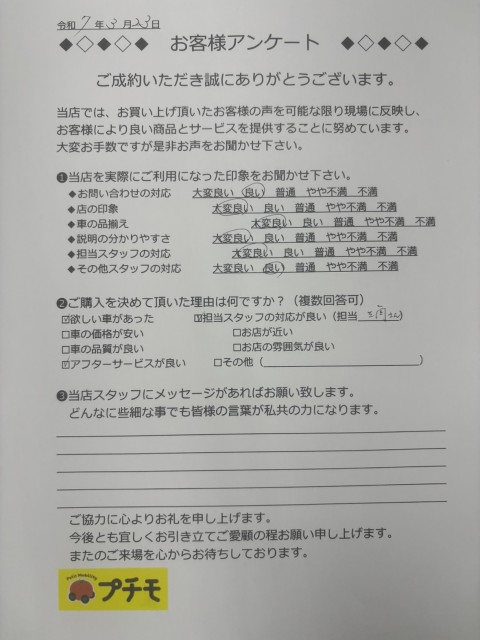 令和 7 年 3 月 23 日
◆◇◆◇◆ お客様アンケート ◆◇◆◇◆
ご成約いただき誠にありがとうございます。
当店では、お買い上げ頂いたお客様の声を可能な限り現場に反映し、
お客様により良い商品とサービスを提供することに努めています。
大変お手数ですが是非お声をお聞かせ下さい。
❶当店を実際にご利用になった印象をお聞かせ下さい。
◆お問い合わせの対応 大変良い 良い 普通 やや不満 不満
◆店の印象 大変良い 良い 普通 やや不満 不満
◆車の品揃え 大変良い 良い 普通 やや不満 不満
◆説明の分かりやすさ 大変良い 良い 普通 やや不満 不満
◆担当スタッフの対応 大変良い 良い 普通 やや不満 不満
◆その他スタッフの対応 大変良い 良い 普通 やや不満 不満
❷ご購入を決めて頂いた理由は何ですか？（複数回答可）
☑欲しい車があった ☑担当スタッフの対応が良い（担当 さん
□車の価格が安い □お店が近い
□車の品質が良い □お店の雰囲気が良い
☑アフターサービスが良い □その他（ ）
❸当店スタッフにメッセージがあればお願い致します。
どんなに些細な事でも皆様の言葉が私共の力になります。
ご協力に心よりお礼を申し上げます。
今後とも宜しくお引き立てご愛顧の程お願い申し上げます。
またのご来場を心からお待ちしております。
プチモ